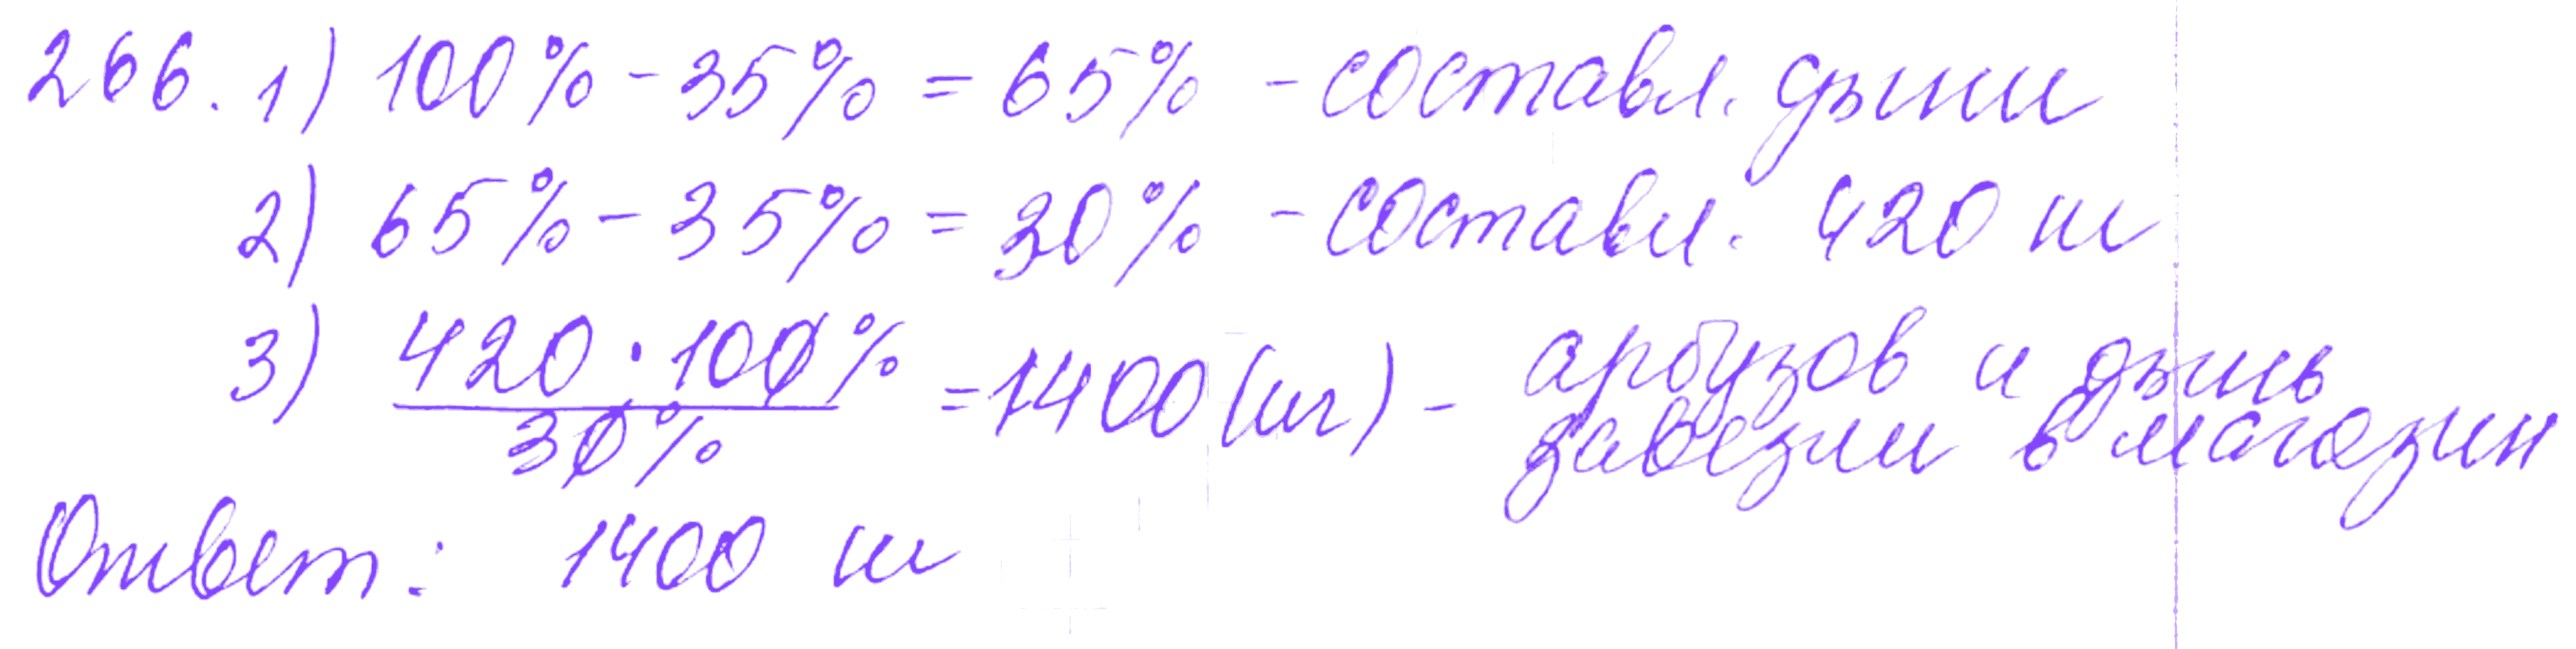 266. 1) 100% - 35% = 65% - составл. дыни
2) 65% - 35% = 30% - составл. 420 ш
3) 420 · 100% / 30% = 1400 (шт) - арбузов и дынь
завезли в магазин
Ответ: 1400 ш